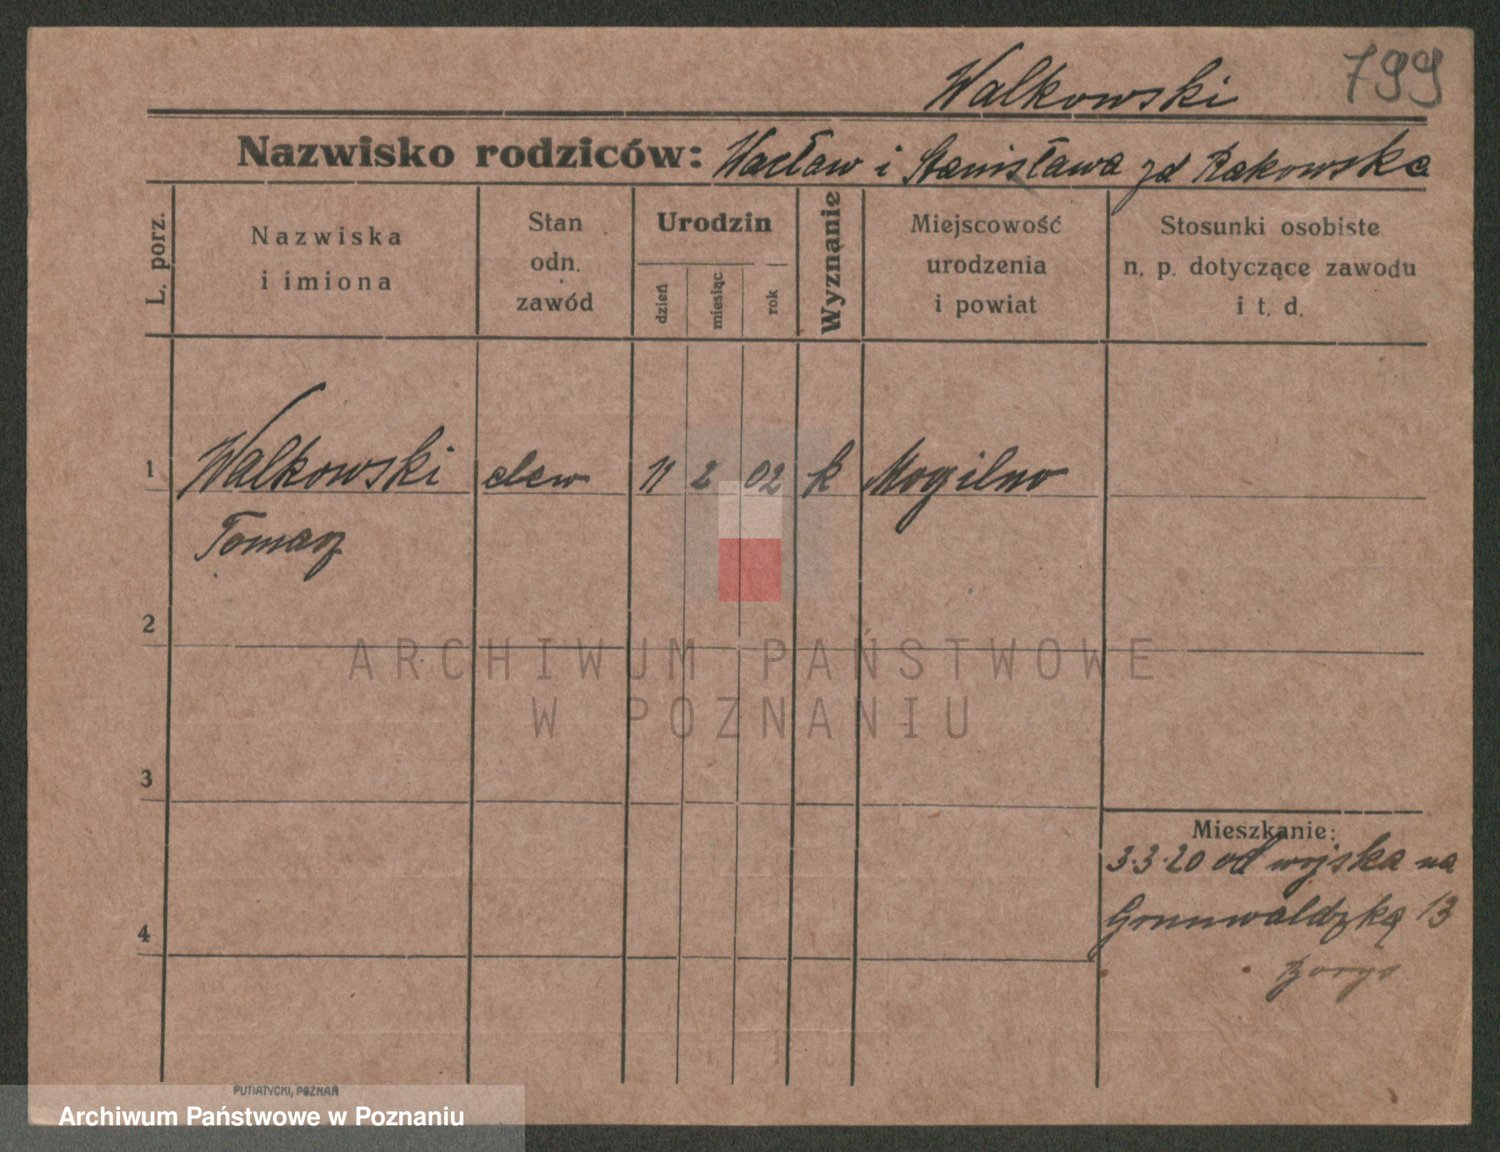 Walkowski 799
Nazwisko rodziców: Wacław i Stanisława zd Rakowska
L. porz.
Nazwiska
i imiona
Stan
odn.
zawód
Urodzin
dzień
miesiąc
rok
Wyznanie
Miejscowość
urodzenia
i powiat
Stosunki osobiste
n. p. dotyczące zawodu
i t. d.
1 Walkowski elew 11 2 02 k Mogilno
Tomasz
2
ARCHIWUM PAŃSTWOWE
W POZNANIU
3
Mieszkanie:
3.3.20 od wojska na
4 Grunwaldzką 13
PUTIATYCKI, POZNAŃ
Archiwum Państwowe w Poznaniu